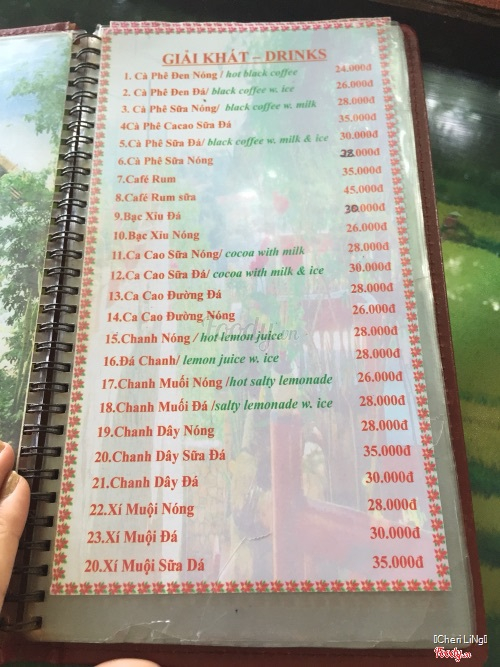 GIẢI KHÁT – DRINKS
1. Cà Phê Đen Nóng / hot black coffee 24.000đ
2. Cà Phê Đen Đá/ black coffee w. ice 26.000đ
3. Cà Phê Sữa Nóng/ black coffee w. milk 28.000đ
4Cà Phê Cacao Sữa Đá 35.000đ
5.Cà Phê Sữa Đá/ black coffee w. milk & ice 30.000đ
6.Cà Phê Sữa Nóng 28.000đ
7.Café Rum 35.000đ
8.Café Rum sữa 45.000đ
9.Bạc Xỉu Đá 30.000đ
10.Bạc Xỉu Nóng 26.000đ
11.Ca Cao Sữa Nóng/ cocoa with milk 28.000đ
12.Ca Cao Sữa Đá/ cocoa with milk & ice 30.000đ
13.Ca Cao Đường Đá 28.000đ
14.Ca Cao Đường Nóng 26.000đ
15.Chanh Nóng / hot lemon juice 28.000đ
16.Đá Chanh/ lemon juice w. ice 28.000đ
17.Chanh Muối Nóng /hot salty lemonade 26.000đ
18.Chanh Muối Đá /salty lemonade w. ice 28.000đ
19.Chanh Dây Nóng 28.000đ
20.Chanh Dây Sữa Đá 35.000đ
21.Chanh Dây Đá 30.000đ
22.Xí Muội Nóng 28.000đ
23.Xí Muội Đá 30.000đ
20.Xí Muội Sữa Dá 35.000đ
Foody.vn
Cheri LiNg
Foody.vn